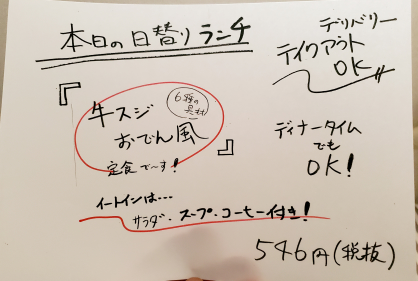 本日の日替りランチ
デリバリー
テイクアウト
OK
『牛スジ
6種の
具材
おでん風
定食で〜す!』
ディナータイム
でも
OK!
イートインは…
サラダ・スープ・コーヒー付き!
546円(税抜)